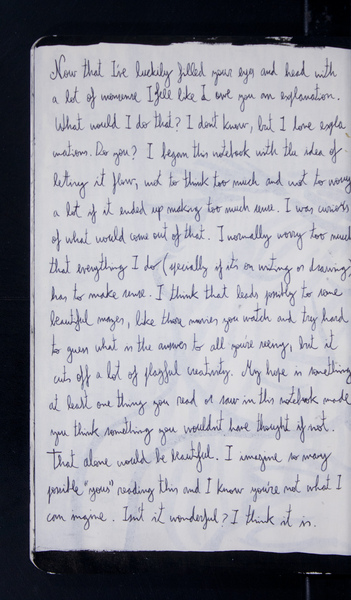 Now that I've luckily filled your eyes and head with
a lot of nonsense I feel like I owe you an explanation.
What would I do that? I don't know, but I love expla
nations. Do you? I began this notebook with the idea of
letting it flow, not to think too much and not to worry
a lot if it ended up making too much sense. I was curious
of what would come out of that. I normally worry too much
that everything I do (specially if its on writing or drawing)
has to make sense. I think that leads posibly to some
beautiful mazes, like those movies you watch and try hard
to guess what is the answer to all you're seeing, but it
cuts off a lot of playful creativity. My hope is something
at least one thing you read or saw in this notebook made
you think something you wouldn't have thought if not.
That alone would be beautiful. I imagine so many
posible "yous" reading this and I know you're not what I
can imgine. Isn't it wonderful? I think it is.